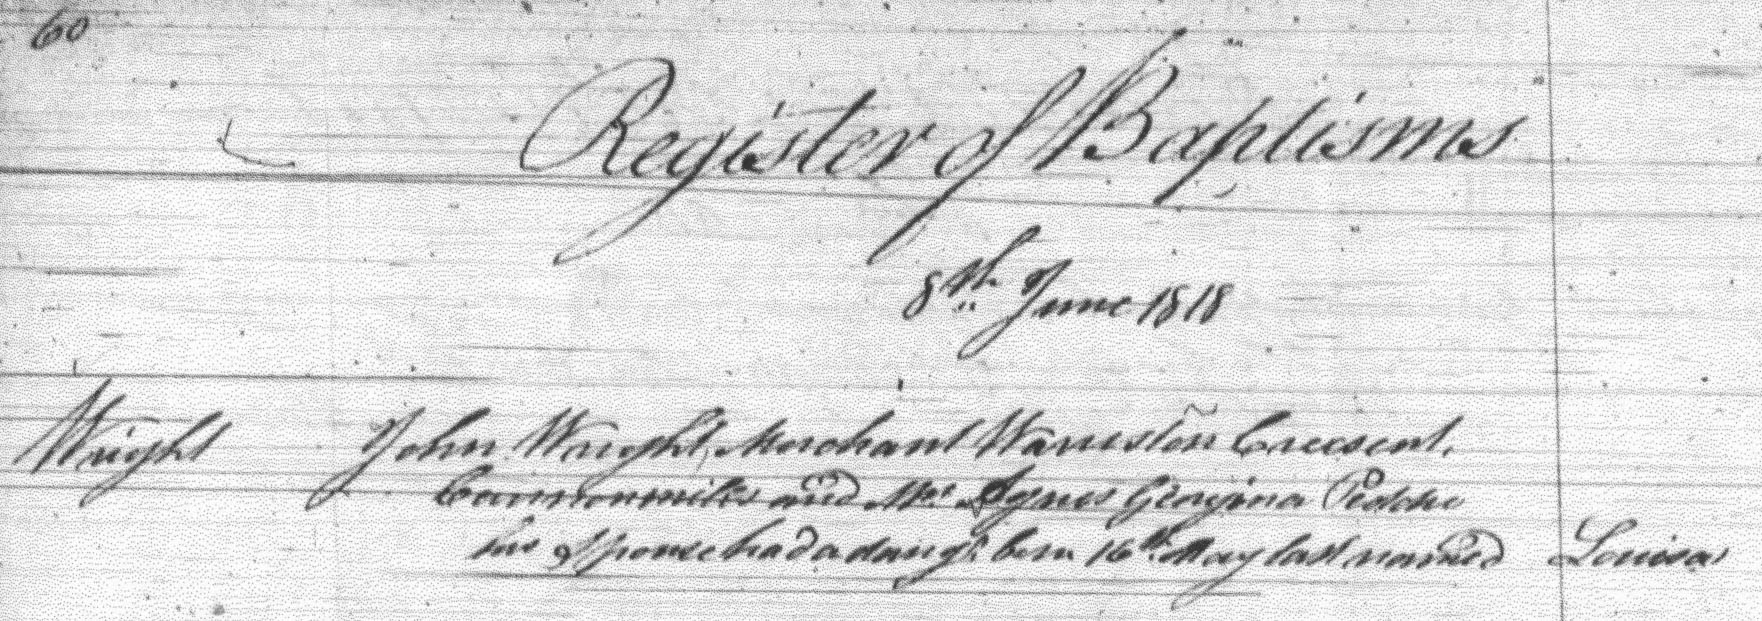 60
Register of Baptisms
8th June 1818
Wright John Wright, Merchant Warriston Crescent,
Cannonmills and Mrs Agnes Georgina Peddie
his Spouse had a daugr. born 16th May last named Louisa